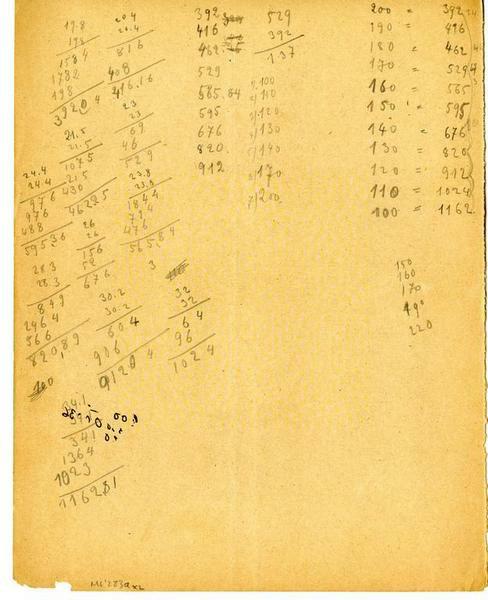 19.8
198
1584
1782
198
3920 4
20.4
20.4
816
408
416.16
21.5
21.5
1075
215
430
46225
23
23
69
46
529
24.4
24.4
976
976
488
595.36
23.8
1844
714
476
565.84
26
26
156
52
676
28.3
28.3
849
2264
566
820,89
30.2
30.2
604
906
9120 4
3
32
32
64
96
1024
100
34.1
341
1364
1023
1162 81
392
416
462
529
585.84
595
676
820.
912
529
392
137
100
110
120
130
140
170
200
200 = 392
190 = 416
180 = 462
170 = 529
160 = 565
150 = 595
140 = 676
130 = 820
120 = 912
110 = 1024
100 = 1162
150
160
170
190
220